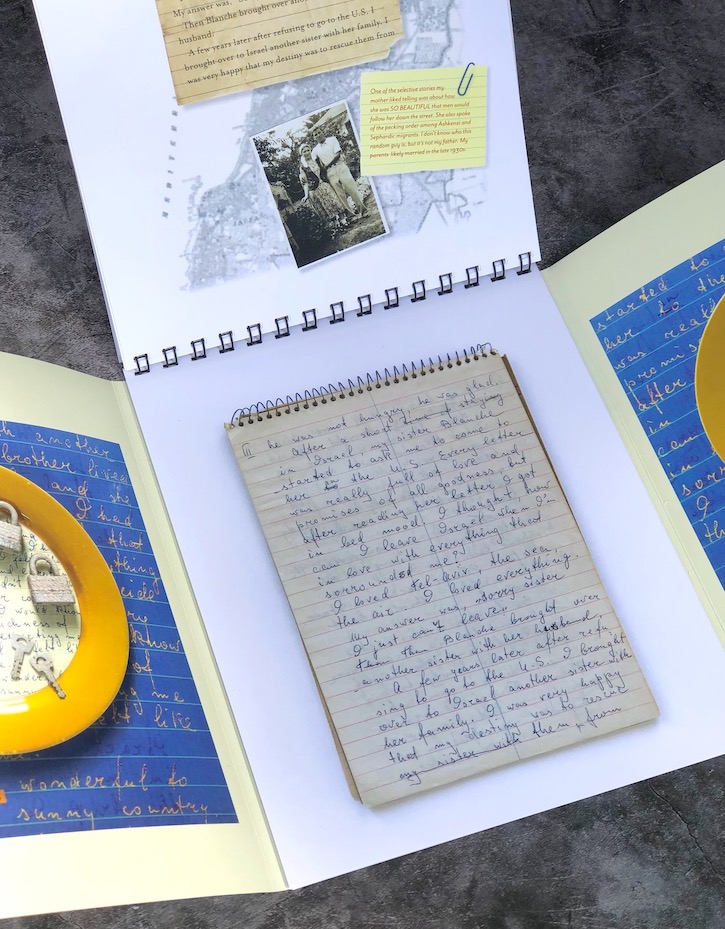 My answer was,
Then Blanche brought over
husband.
A few years later after refusing to go to the U.S. I
brought over to Israel another sister with her family. I
was very happy that my destiny was to rescue them from
One of the selective stories my
mother liked telling was about how
she was SO BEAUTIFUL that men would
follow her down the street. She also spoke
of the pecking order among Ashkenzi and
Sephardic migrants. I don't know who this
random guy is, but it's not my father. My
parents likely married in the late 1930s.
III he was not hungry, he was glad.
After a short time of staying
in Israel, my sister Blanche
started to ask me to come to
her in the U.S. Every letter
was really full of love and
promises of all goodness, but
after reading her letter I got
in bad mood. I thought, how
can I leave Israel when I'm
in love with everything that
surrounded me?
I loved Tel-Aviv, the sea,
the air. I loved everything.
My answer was, "sorry sister
I just can't leave."
Then Blanche brought over
another sister with her husband.
A few years later after refu
sing to go to the U.S. I brought
over to Israel another sister with
her family. I was very happy
that my destiny was to rescue
my sister with them from
another
brother lived
and she
I had
that
thing
know
of
me
felt like
wonderful to
sunny country
started to
her to the
was really
promis
after
in
can
in